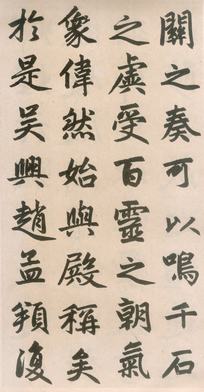 關之奏可以鳴千石
之虡受百靈之朝氣
象偉然始與殿稱矣
於是吳興趙孟頫復